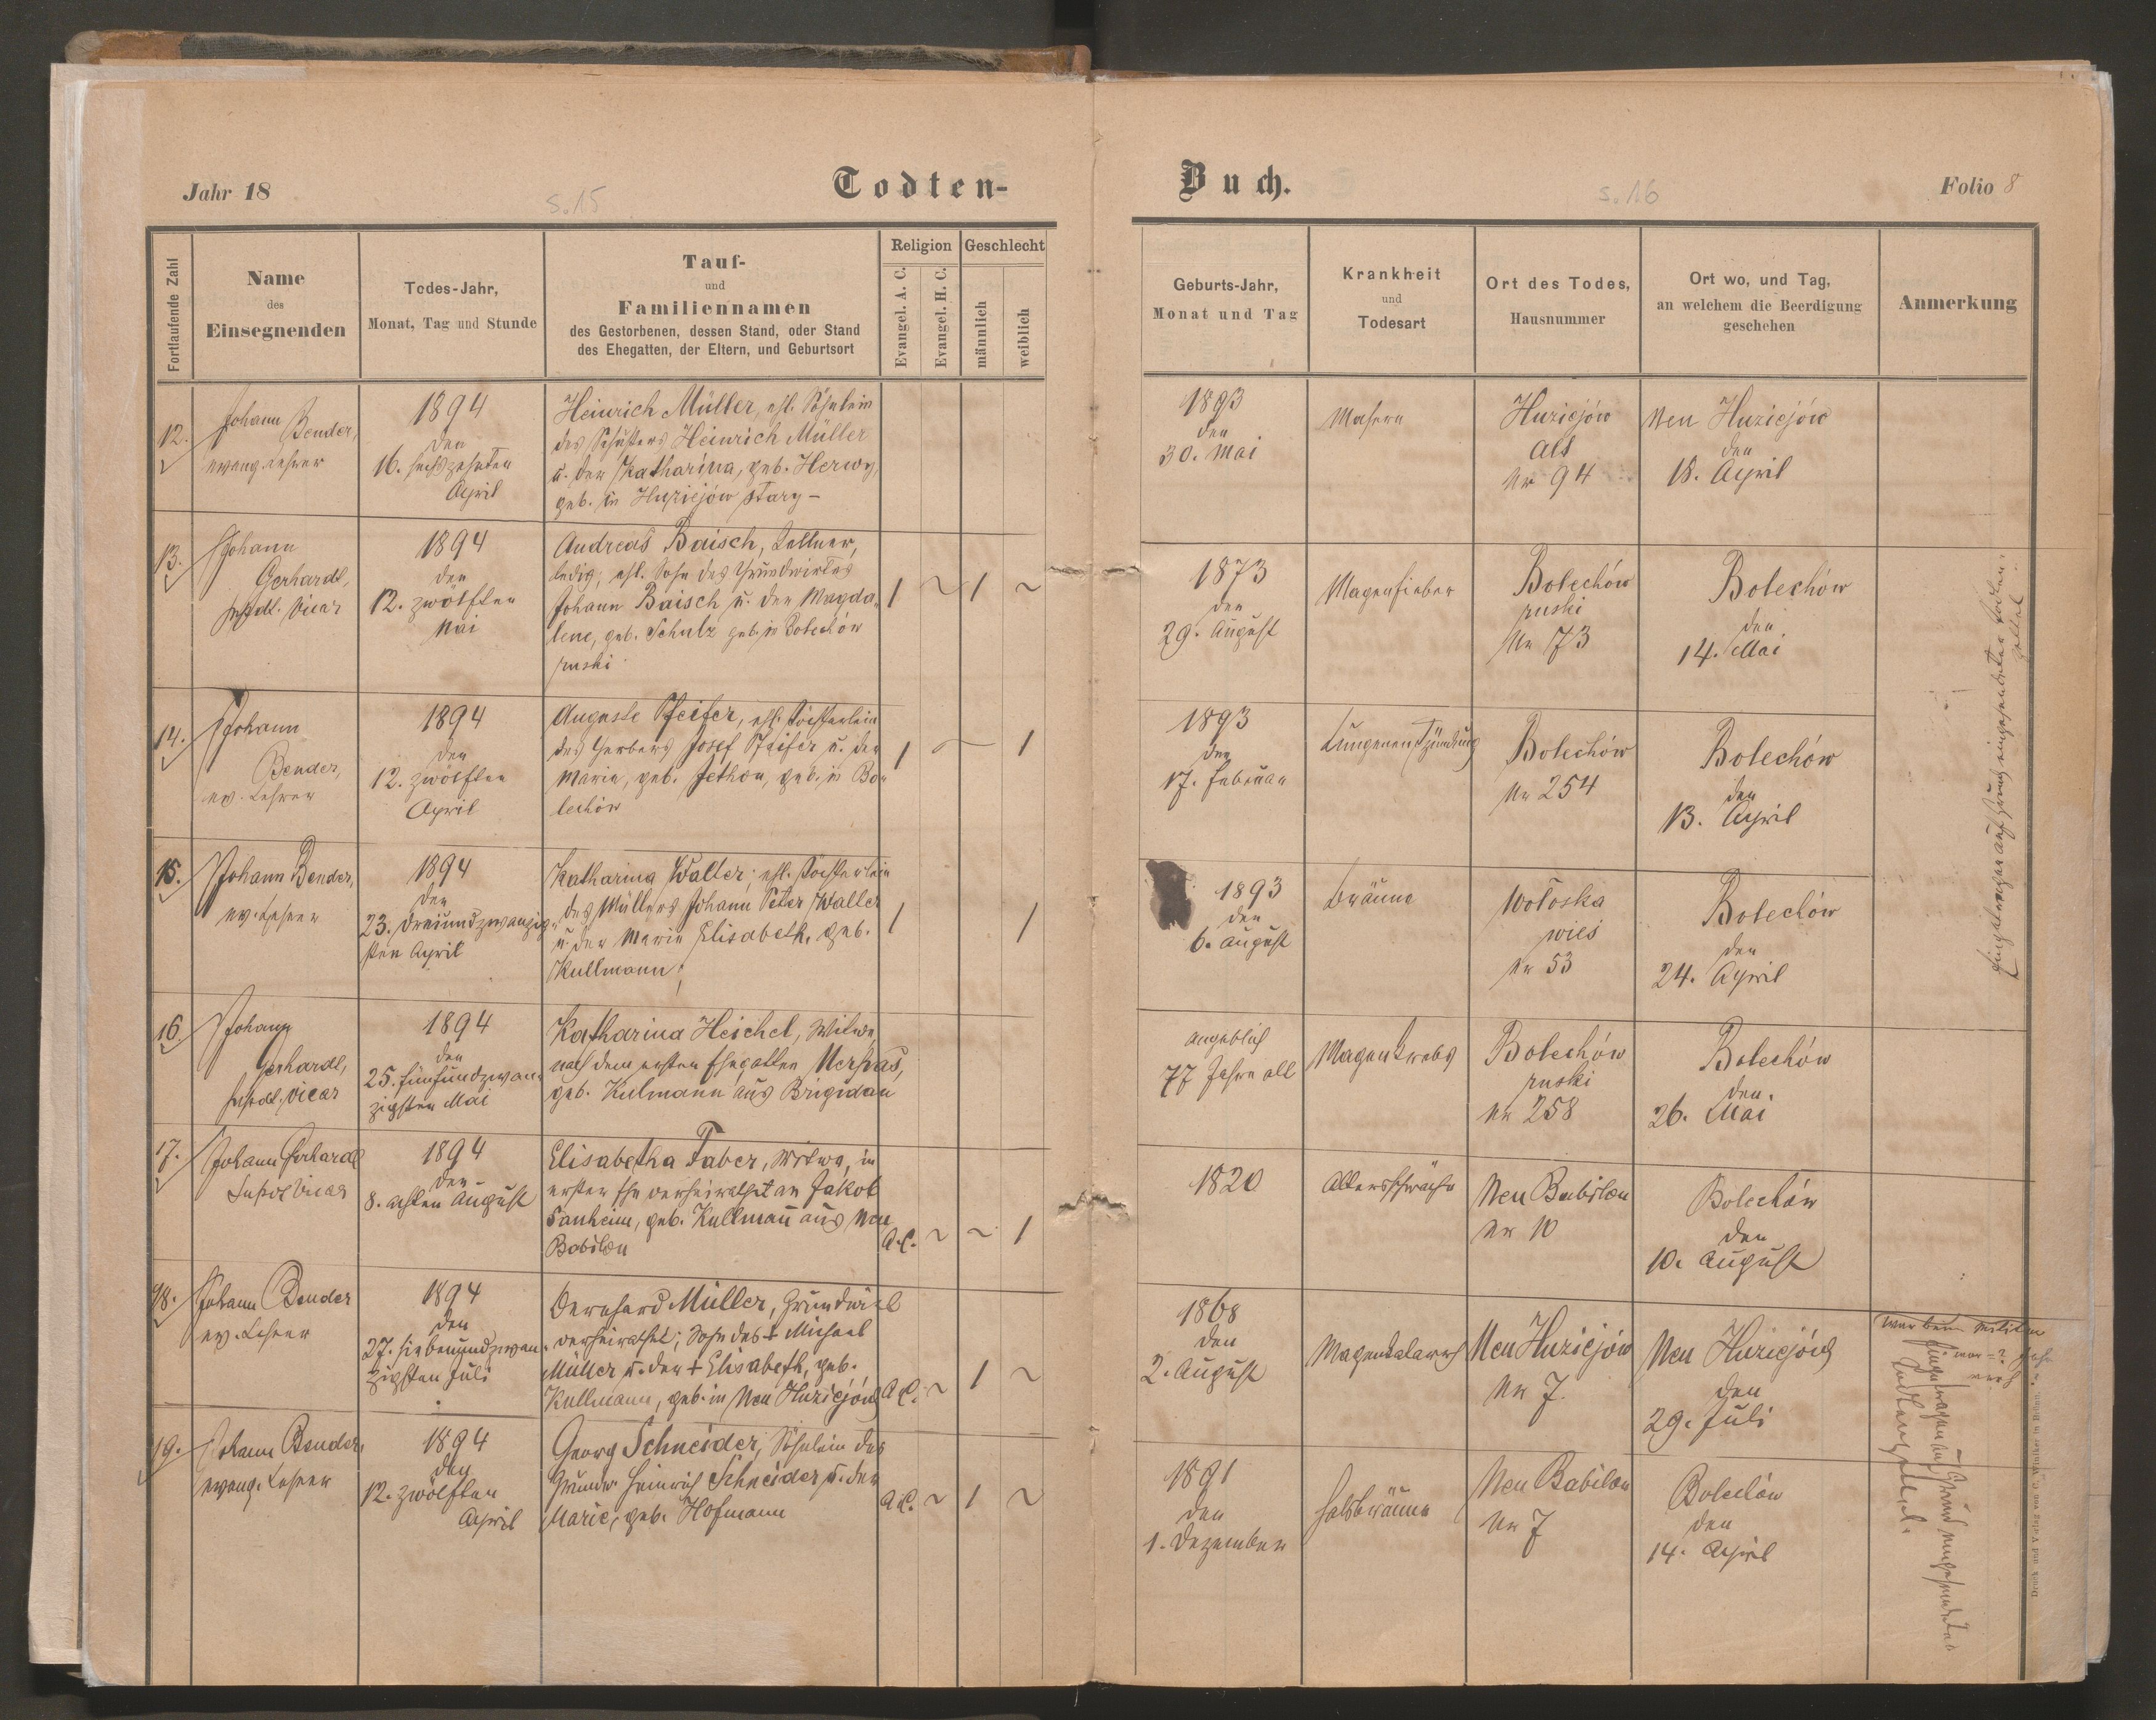 Jahr 18
s. 15
Todten-
Buch.
s. 16
Folio 8
Fortlaufende Zahl
Name
des
Einsegnenden
Todes-Jahr,
Monat, Tag und Stunde
Tauf-
und
Familiennamen
des Gestorbenen, dessen Stand, oder Stand
des Ehegatten, der Eltern, und Geburtsort
Religion
Geschlecht
Evangel. A. C.
Evangel. H. C.
männlich
weiblich
Geburts-Jahr,
Monat und Tag
Krankheit
und
Todesart
Ort des Todes,
Hausnummer
Ort wo, und Tag,
an welchem die Beerdigung
geschehen
Anmerkung
12.
Johann Bender,
evang. Lehrer
1894
den
16. sechszehnten
April
Heinrich Müller, ehl. Söhnlein
des Schusters Heinrich Müller
u. der Katharina, geb. Herwy,
geb. in Huziejów stary –
1893
den
30. Mai
Masern
Huziejów
alt
Nr 94
Neu Huziejów
den
18. April
13.
Johann
Gerhardt,
Vicar
1894
den
12. zwölften
Mai
Andreas Baisch, Kellner,
ledig, ehl. Sohn des Grundwirtes
Johann Baisch u. der Magda-
lene, geb. Schulz geb. in Bolechów
ruski
1 ~ 1 ~
1873
den
29. August
Magenfieber
Bolechów
ruski
Nr 73
Bolechów
den
14. Mai
14.
Johann
Bender,
ev. Lehrer
1894
den
12. zwölften
April
Auguste Pfeifer, ehl. Töchterlein
des Gerbers Josef Pfeifer u. der
Marie, geb. Jethon, geb. in Bo-
lechów
1 ~ 1
1893
den
17. Februar
Lungenentzündung
Bolechów
Nr 254
Bolechów
den
13. April
15.
Johann Bender,
ev. Lehrer
1894
den
23. dreiundzwanzig-
sten April
Katharina Walter, ehl. Töchterlein
des Müllers Johann Peter Walter
u. der Marie Elisabeth, geb.
Kullmann;
1 1
1893
den
6. August
Bräune
Wołoska
wieś
Nr 53
Bolechów
den
24. April
16.
Johann
Gerhardt,
Vicar
1894
den
25. fünfundzwan-
zigsten Mai
Katharina Heichel, Witwe
nach dem ersten Ehegatten
geb. Kulmann aus Brigidau
angeblich
77 Jahre alt
Magenkrebs
Bolechów
ruski
Nr 258
Bolechów
den
26. Mai
17.
Johann Gerhardt
Vicar
1894
den
8. achten August
Elisabetha Faber, Witwe, in
erster Ehe verheirathet an Jakob
geb. Kullmann aus Neu
Babilon
A.C. ~ ~ 1
1820
Altersschwäche
Neu Babilon
Nr 10
Bolechów
den
10. August
18.
Johann Bender
ev. Lehrer
1894
den
27. siebenundzwan-
zigsten Juli
Bernhard Müller, Grundwirt
verheirathet; Sohn des † Michael
Müller u. der † Elisabeth, geb.
Kullmann, geb. in Neu Huziejów
A.C. ~ 1 ~
1868
den
2. August
Magenkatarrh
Neu Huziejów
Nr 7.
Neu Huziejów
den
29. Juli
19.
Johann Bender,
evang. Lehrer
1894
den
12. zwölften
April
Georg Schneider, Söhnlein des
Grundw. Heinrich Schneider u. der
Marie, geb. Hofmann
A.C. ~ 1 ~
1891
den
1. Dezember
Halsbräune
Neu Babilon
Nr 7
Bolechów
den
14. April